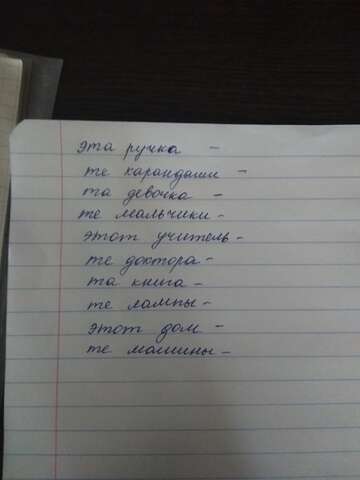 эта ручка –
те карандаши –
та девочка –
те мальчики –
этот учитель –
те доктора –
та книга –
те лампы –
этот дом –
те машины –